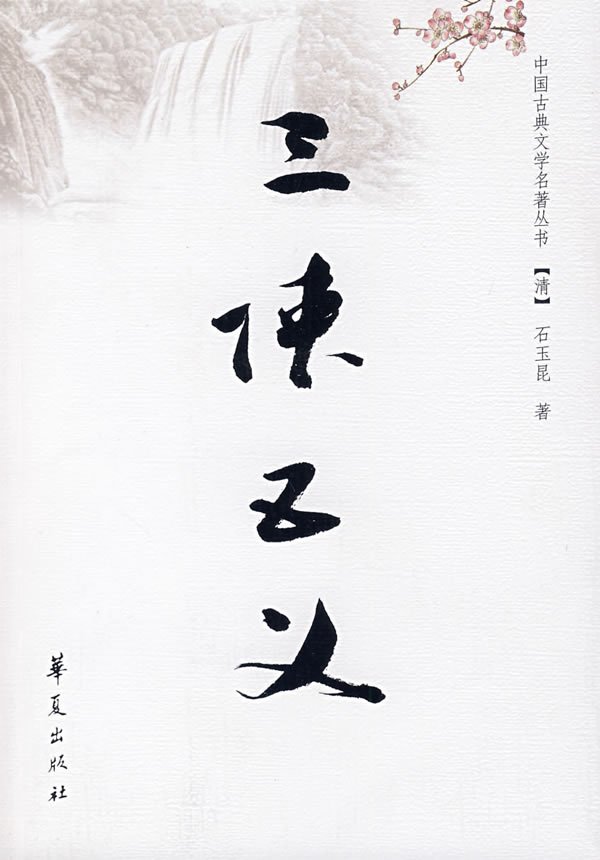 中国古典文学名著丛书【清】 石玉昆 著
三侠五义
華夏出版社